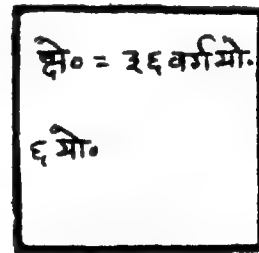 क्षे० = ३६ वर्ग यो.
६ यो०